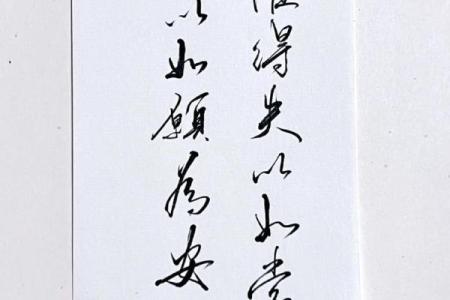 得失以如常
以如願為安